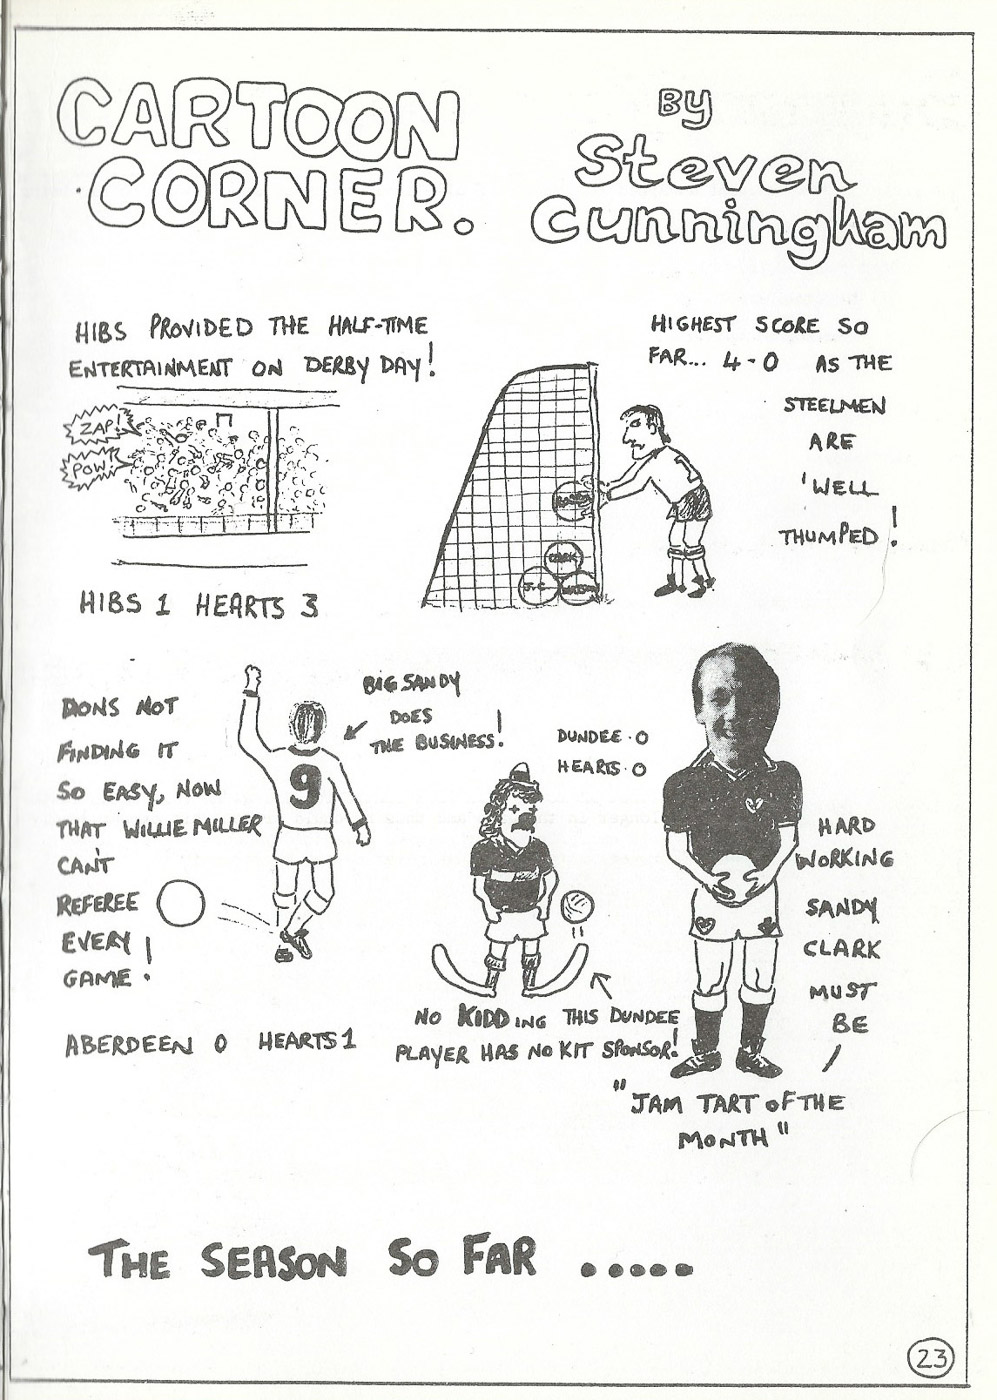 CARTOON
CORNER.
BY
Steven
Cunningham
HIBS PROVIDED THE HALF-TIME
ENTERTAINMENT ON DERBY DAY!
ZAP!
POW!
HIBS 1 HEARTS 3
HIGHEST SCORE SO
FAR... 4-0 AS THE
STEELMEN
ARE
'WELL
THUMPED!
1
CLARK
J.C.
DONS NOT
FINDING IT
SO EASY, NOW
THAT WILLIE MILLER
CAN'T
REFEREE
EVERY
GAME!
9
BIG SANDY
DOES
THE BUSINESS!
ABERDEEN 0 HEARTS 1
DUNDEE·0
HEARTS·0
NO KIDDING THIS DUNDEE
PLAYER HAS NO KIT SPONSOR!
HARD
WORKING
SANDY
CLARK
MUST
BE
"JAM TART OF THE
MONTH"
THE SEASON SO FAR .....
23